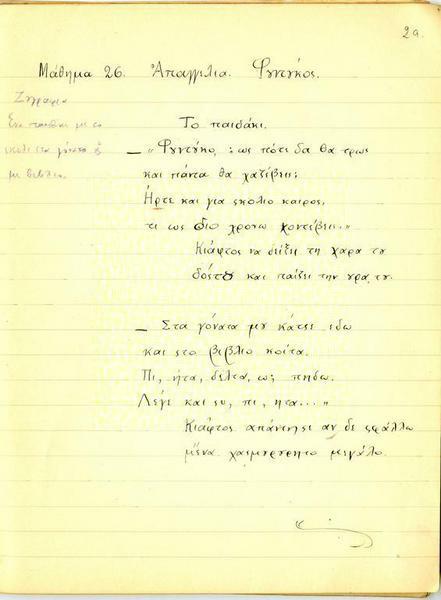 29.
Μάθημα 26. Ἀπαγγελια. Φυντύκος.
Ζγραφια
Ενα παιδακι με το
στα γόνατα
με βιβλιο.
Το παιδάκι.
— "Φυντύκο, ως πότε δα θα τρως
και πάντα θα χαζέβεις;
Ηρτε και για σκολιο καιρος,
τι ως διο χρονω κοντέβεις."
Κιάφτος να δείξει τη χαρα τυ
και παίζει την υρα τυ.
— Στα γόνατα μυ κάτσε εδω
και στο βιβλιο κοίτα.
Πι, ήτα, δέλτα, ως πηδω.
Λέγε και συ, πι, ητα..."
Κιάφτος απάντησε αν δε σφάλλω
μένα χασμυρυρητο μεγάλο.